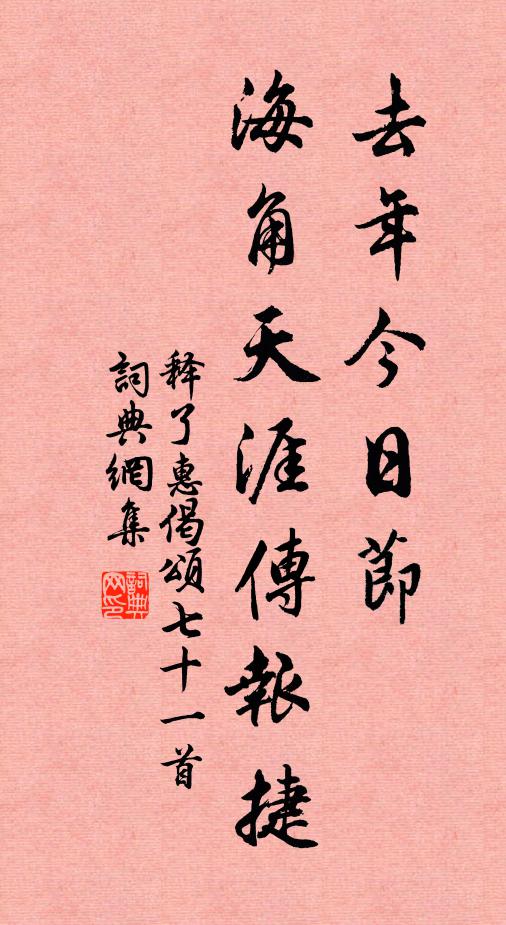 去年今日節
海角天涯傳報捷
释了惠偈頌七十一首
詞典網集
詞典网印